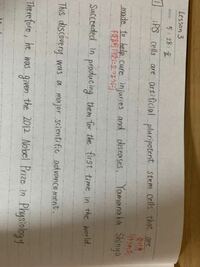 Lesson 3
1 iPS cells are artificial pluripotent stem cells that are
made to help cure injuries and diseases. Yamanaka Shinya
succeeded in producing them for the first time in the world.
This discovery was a major scientific advancement.
Therefore, he was given the 2012 Nobel Prize in Physiology